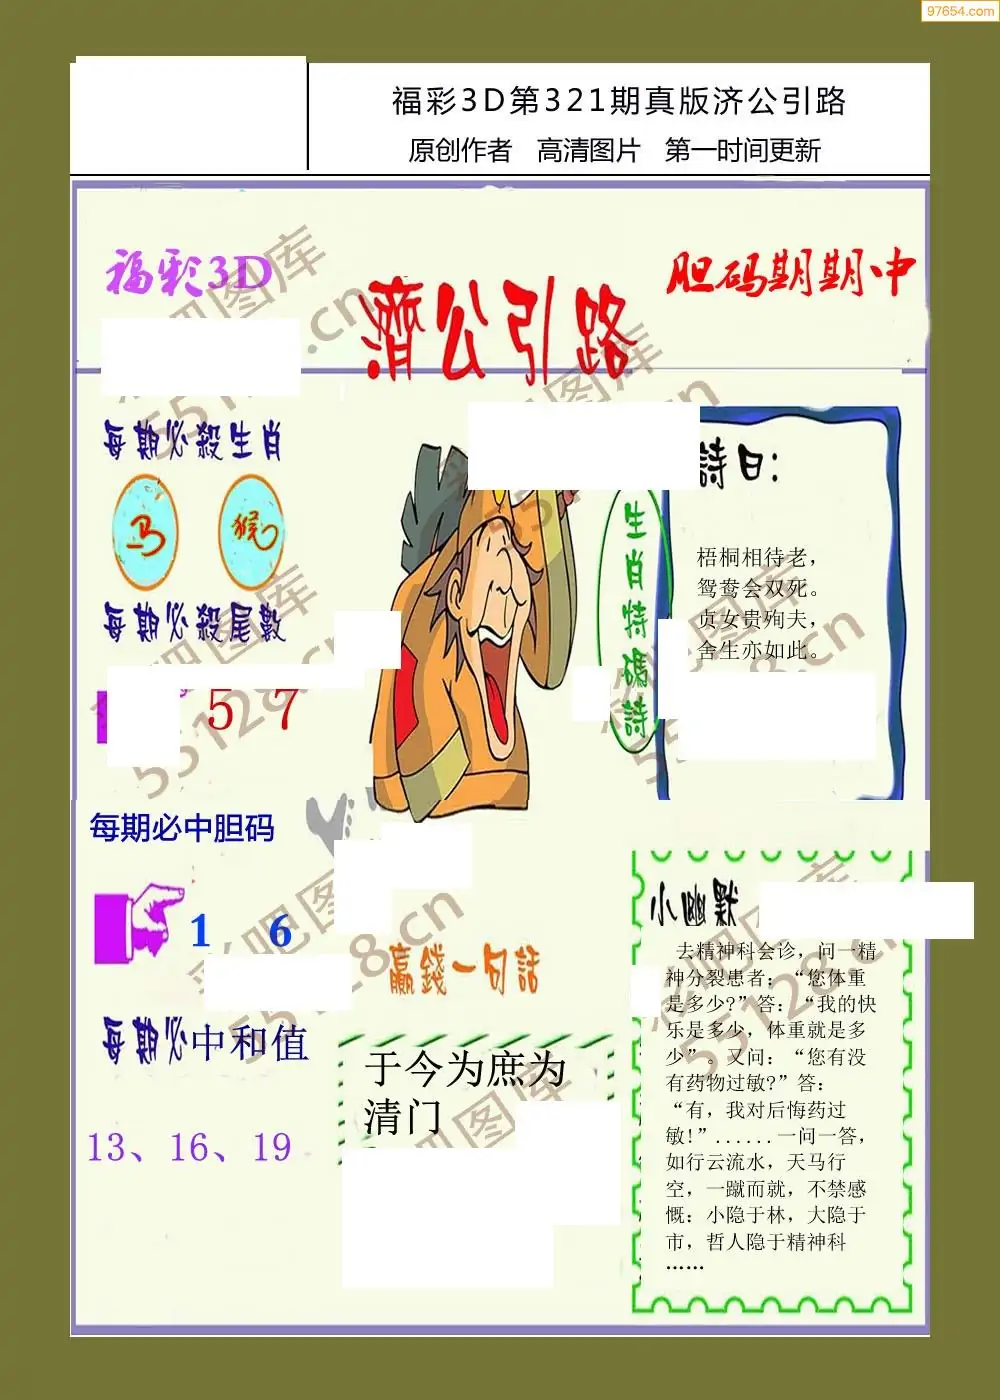 97654.com
福彩3D第321期真版济公引路
原创作者 高清图片 第一时间更新
福彩3D
濟公引路
胆码期期中
每期必殺生肖
马 猴
每期必殺尾數
5 7
每期必中胆码
1 6
每期必中和值
13、16、19
生肖特碼詩
詩曰：
梧桐相待老，
鸳鸯会双死。
贞女贵殉夫，
舍生亦如此。
赢錢一句話
于今为庶为
清门
小幽默
去精神科会诊，问一精
神分裂患者：“您体重
是多少?”答：“我的快
乐是多少，体重就是多
少”。又问：“您有没
有药物过敏?”答：
“有，我对后悔药过
敏!”......一问一答，
如行云流水，天马行
空，一蹴而就，不禁感
慨：小隐于林，大隐于
市，哲人隐于精神科
……
彩吧图库
55128.cn